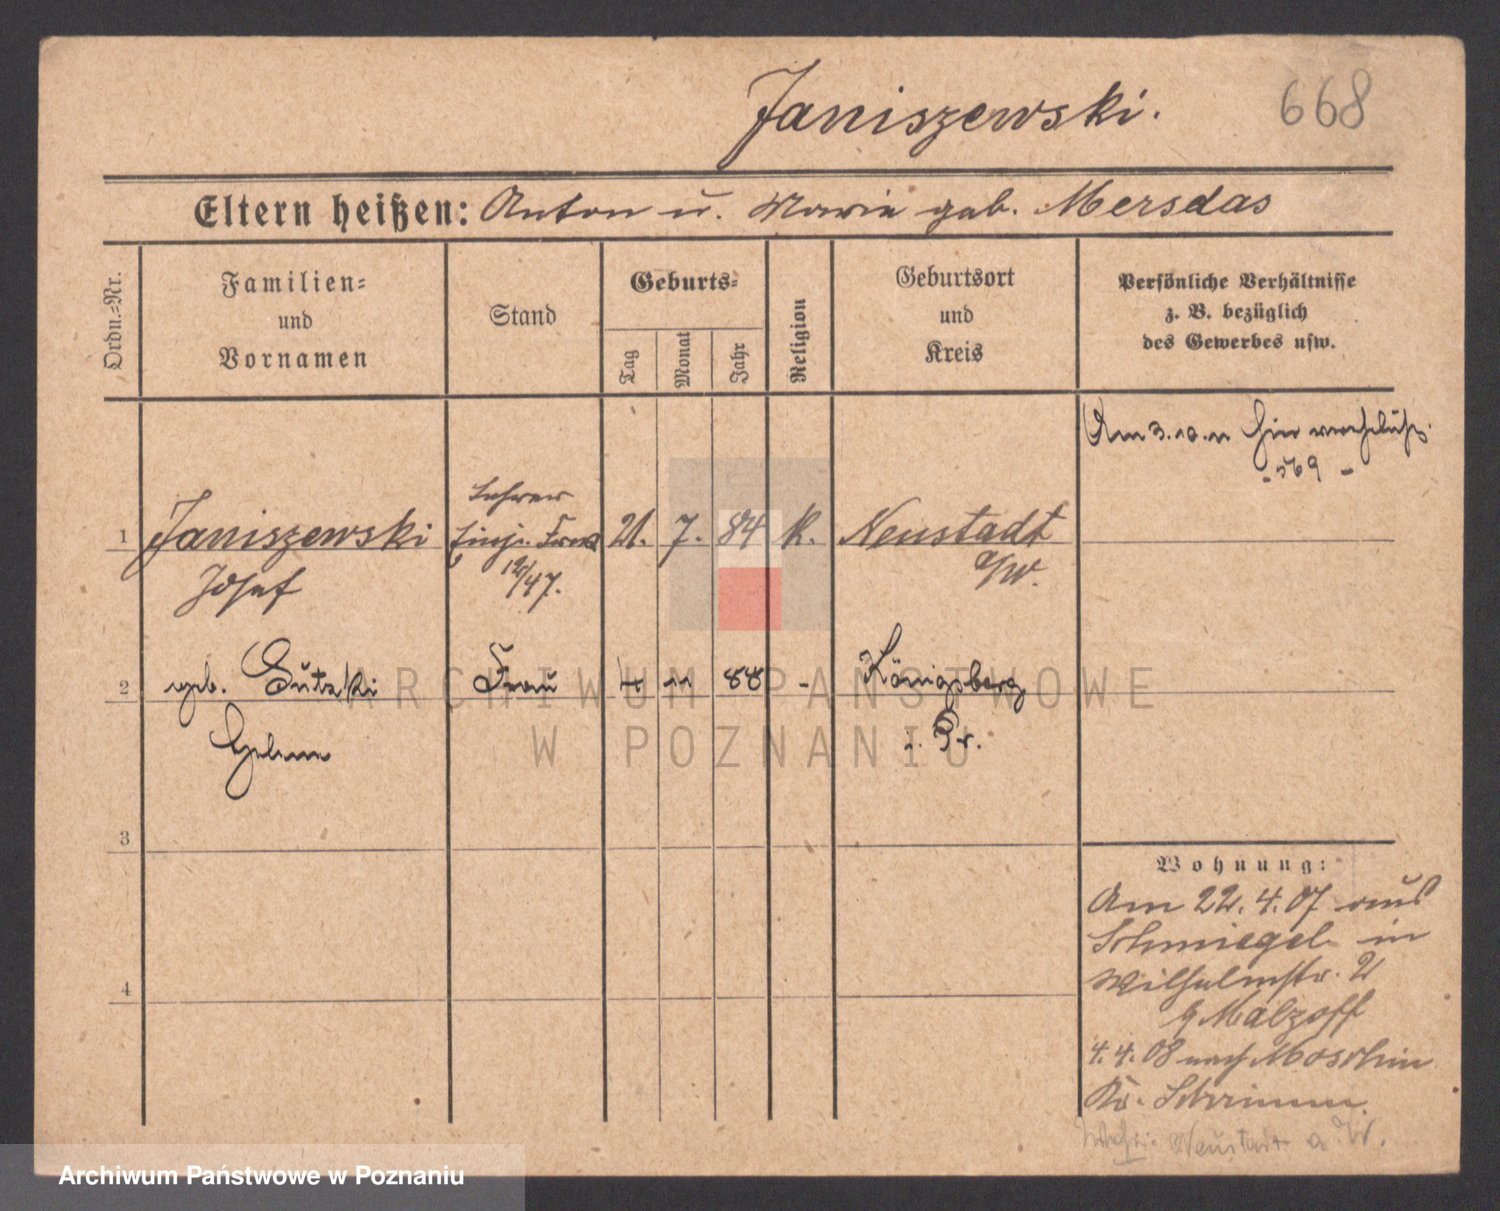 Janiszewski.
668
Eltern heißen: Anton u. Maria geb. Mersdas
Ordn.=Nr.
Familien=
und
Vornamen
Stand
Geburts=
Tag
Monat
Jahr
Religion
Geburtsort
und
Kreis
Persönliche Verhältnisse
z. B. bezüglich
des Gewerbes usw.
Am 3.10.11 hier
- 569 -
Lehrer
1 Janiszewski Einj. Freiw 21. 7. 84 K. Neustadt
Josef
a/W.
2 geb. Frau 4 11 88 - Königsberg
Helene
i. Pr.
3
4
Wohnung:
Am 22. 4. 07 aus
Schmiegel in
Wilhelmstr. 21
b Malzoff
4. 4. 08 nach Moschin
Kr. Schrimm.
Neustadt a W.
ARCHIWUM PAŃSTWOWE
W POZNANIU
Archiwum Państwowe w Poznaniu